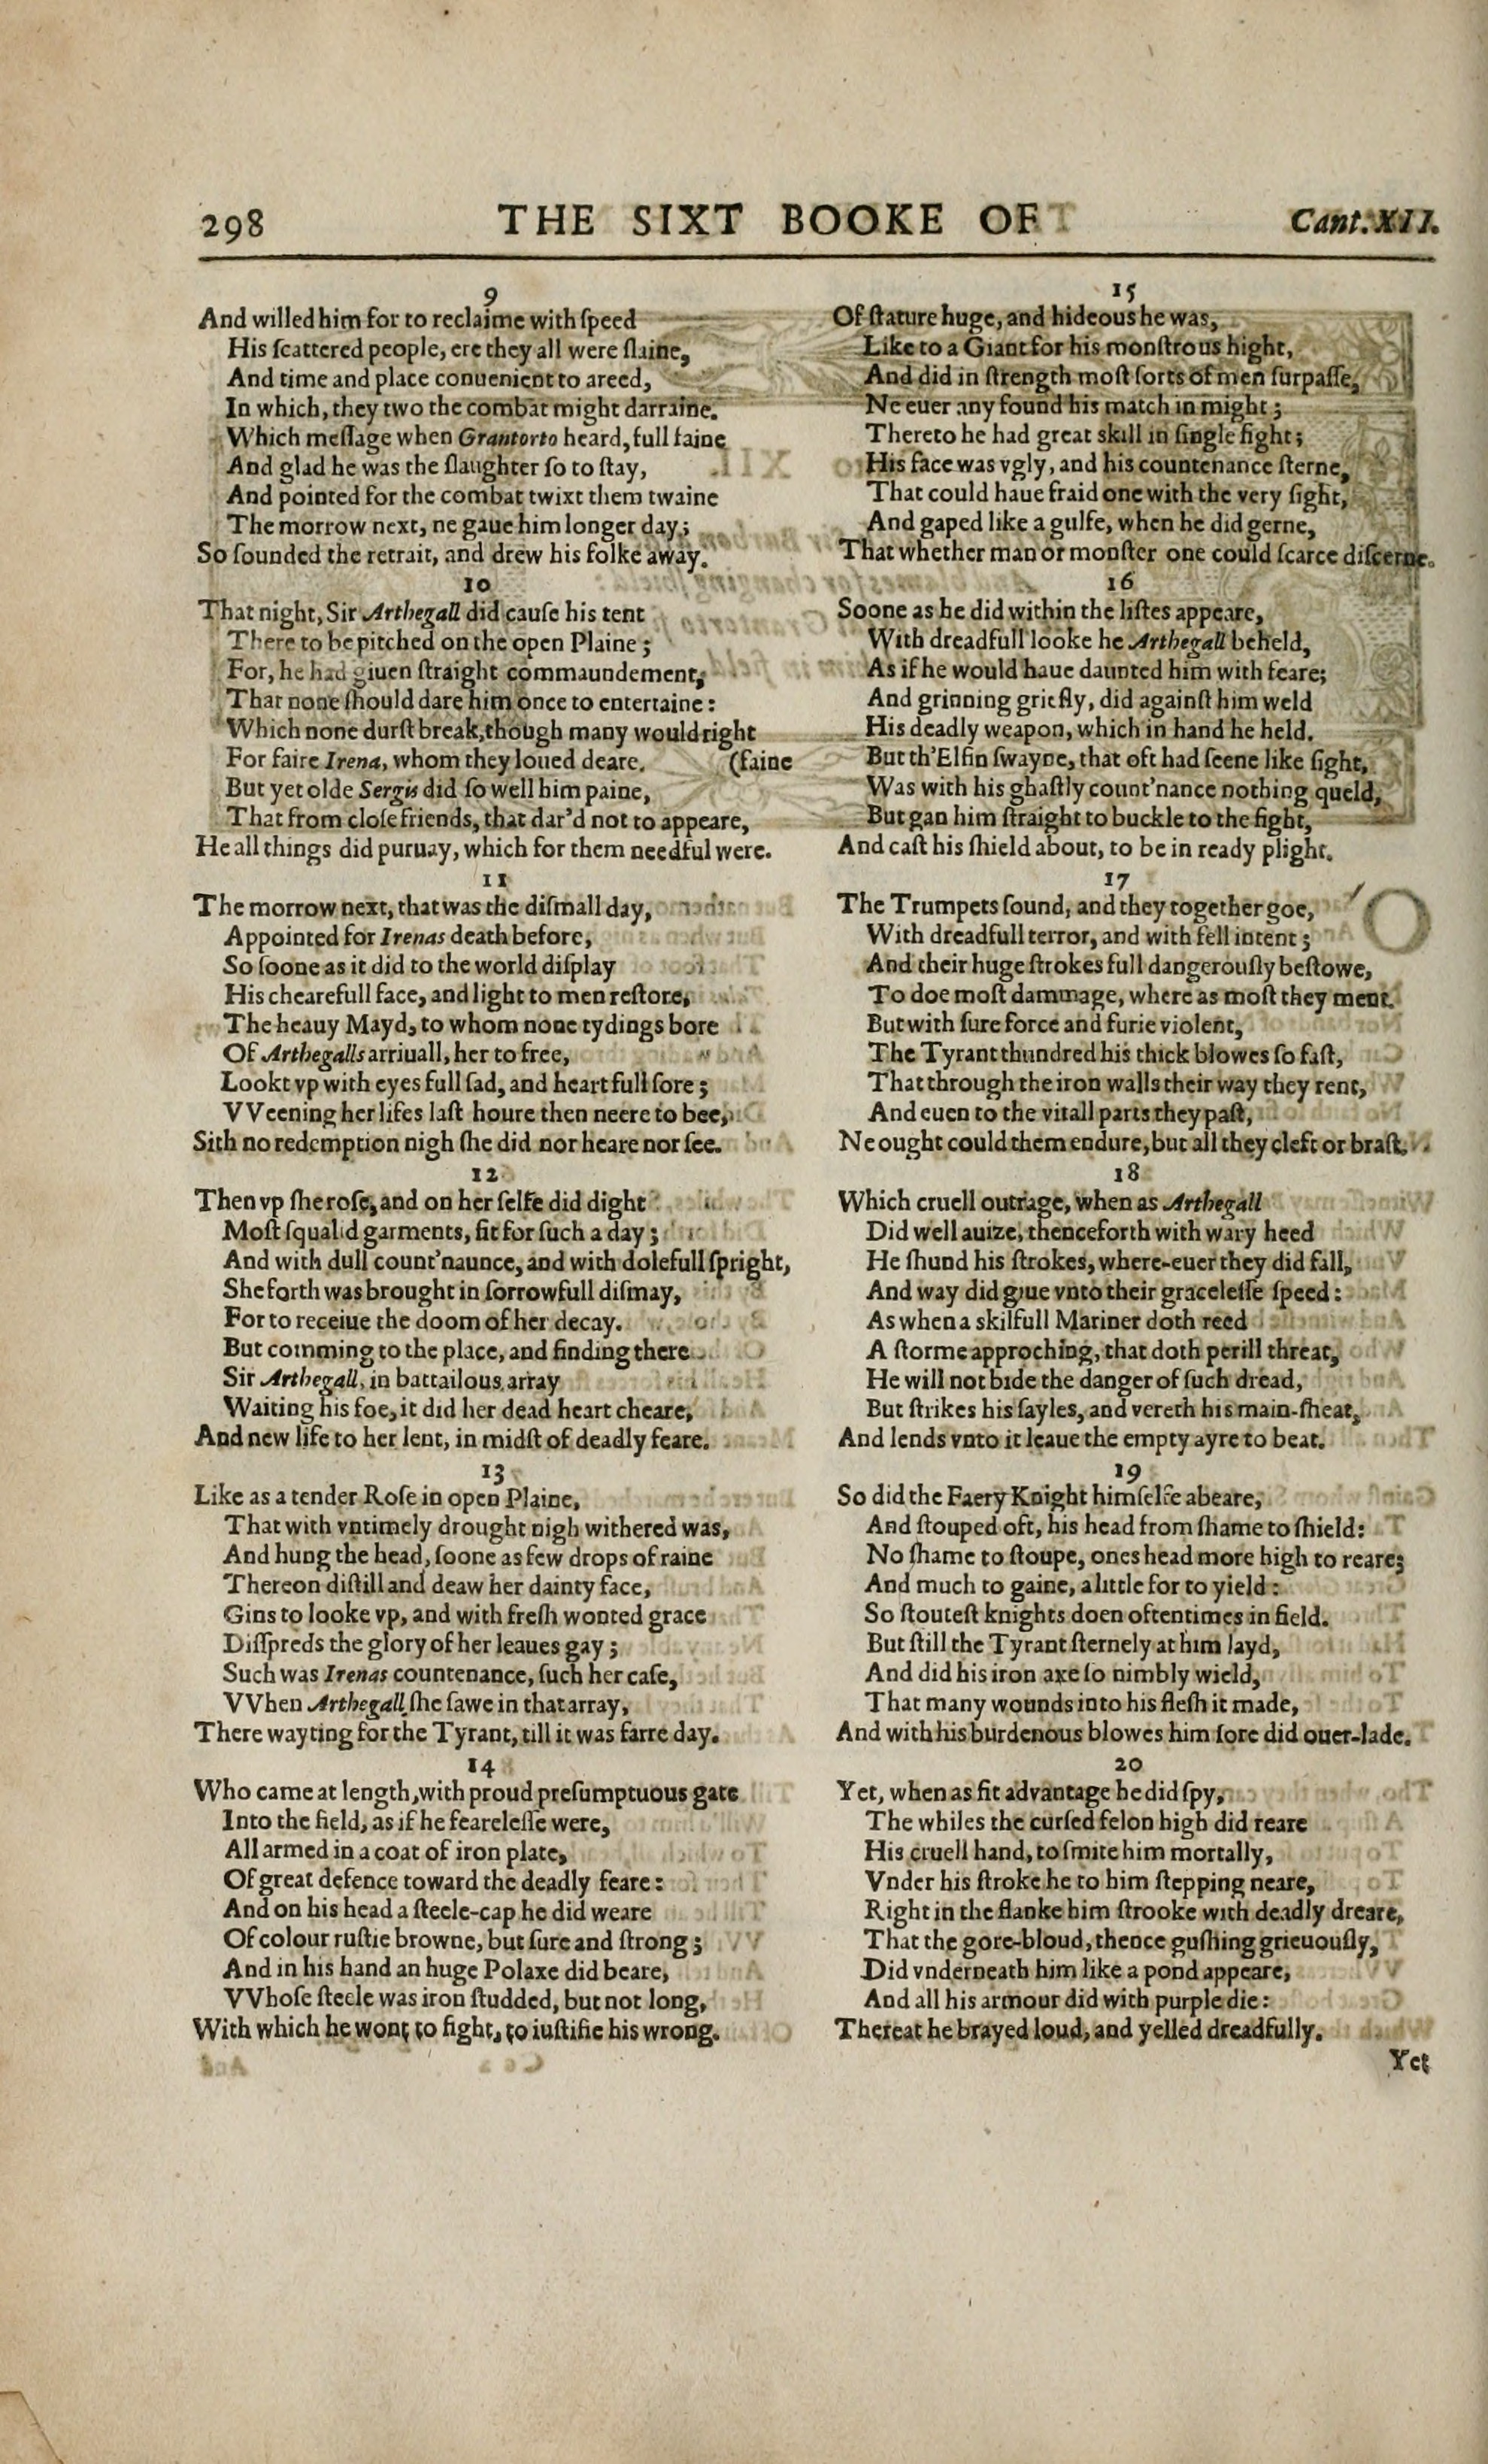 298 THE SIXT BOOKE OF Cant. XII.
9
And willed him for to reclaime with ſpeed
His ſcattered people, ere they all were ſlaine,
And time and place conuenient to areed,
In which, they two the combat might darraine.
Which meſſage when Grantorto heard, full faine
And glad he was the ſlaughter ſo to ſtay,
And pointed for the combat twixt them twaine
The morrow next, ne gaue him longer day;
So ſounded the retrait, and drew his folke away.
10
That night, Sir Arthegall did cauſe his tent
There to be pitched on the open Plaine;
For, he had giuen ſtraight commaundement,
That none ſhould dare him once to entertaine:
Which none durſt break, though many would right
For faire Irena, whom they loued deare. (faine
But yet olde Sergis did ſo well him paine,
That from cloſe friends, that dar'd not to appeare,
He all things did puruay, which for them needful were.
11
The morrow next, that was the diſmall day,
Appointed for Irenas death before,
So ſoone as it did to the world diſplay
His chearefull face, and light to men reſtore,
The heauy Mayd, to whom none tydings bore
Of Arthegalls arriuall, her to free,
Lookt vp with eyes full ſad, and heart full ſore;
VVeening her lifes laſt houre then neere to bee,
Sith no redemption nigh ſhe did nor heare nor ſee.
12
Then vp ſhe roſe, and on her ſelfe did dight
Moſt ſqualid garments, fit for ſuch a day;
And with dull count'naunce, and with dolefull ſpright,
She forth was brought in ſorrowfull diſmay,
For to receiue the doom of her decay.
But comming to the place, and finding there
Sir Arthegall, in battailous array
Waiting his foe, it did her dead heart cheare,
And new life to her lent, in midſt of deadly feare.
13
Like as a tender Roſe in open Plaine,
That with vntimely drought nigh withered was,
And hung the head, ſoone as few drops of raine
Thereon diſtill and deaw her dainty face,
Gins to looke vp, and with freſh wonted grace
Diſſpreds the glory of her leaues gay;
Such was Irenas countenance, ſuch her caſe,
VVhen Arthegall ſhe ſawe in that array,
There wayting for the Tyrant, till it was farre day.
14
Who came at length, with proud preſumptuous gate
Into the field, as if he feareleſſe were,
All armed in a coat of iron plate,
Of great defence toward the deadly feare:
And on his head a ſteele-cap he did weare
Of colour ruſtie browne, but ſure and ſtrong;
And in his hand an huge Polaxe did beare,
VVhoſe ſteele was iron ſtudded, but not long,
With which he wont to fight, to iuſtifie his wrong.
15
Of ſtature huge, and hideous he was,
Like to a Giant for his monſtrous hight,
And did in ſtrength moſt ſorts of men ſurpaſſe,
Ne euer any found his match in might;
Thereto he had great skill in ſingle fight;
His face was vgly, and his countenance ſterne,
That could haue fraid one with the very ſight,
And gaped like a gulfe, when he did gerne,
That whether man or monſter one could ſcarce diſcerne.
16
Soone as he did within the liſtes appeare,
With dreadfull looke he Arthegall beheld,
As if he would haue daunted him with feare;
And grinning grieſly, did againſt him weld
His deadly weapon, which in hand he held.
But th'Elfin ſwayne, that oft had ſeene like ſight,
Was with his ghaſtly count'nance nothing queld,
But gan him ſtraight to buckle to the fight,
And caſt his ſhield about, to be in ready plight.
17
The Trumpets ſound, and they together goe,
With dreadfull terror, and with fell intent;
And their huge ſtrokes full dangerouſly beſtowe,
To doe moſt dammage, where as moſt they ment.
But with ſure force and furie violent,
The Tyrant thundred his thick blowes ſo faſt,
That through the iron walls their way they rent,
And euen to the vitall parts they paſt,
Ne ought could them endure, but all they cleft or braſt.
18
Which cruell outrage, when as Arthegall
Did well auize, thenceforth with wary heed
He ſhund his ſtrokes, where-euer they did fall,
And way did giue vnto their graceleſſe ſpeed:
As when a skilfull Mariner doth reed
A ſtorme approching, that doth perill threat,
He will not bide the danger of ſuch dread,
But ſtrikes his ſayles, and vereth his main-ſheat,
And lends vnto it leaue the empty ayre to beat.
19
So did the Faery Knight himſelfe abeare,
And ſtouped oft, his head from ſhame to ſhield:
No ſhame to ſtoupe, ones head more high to reare;
And much to gaine, a little for to yield:
So ſtouteſt knights doen oftentimes in field.
But ſtill the Tyrant ſternely at him layd,
And did his iron axe ſo nimbly wield,
That many wounds into his fleſh it made,
And with his burdenous blowes him ſore did ouer-lade.
20
Yet, when as fit advantage he did ſpy,
The whiles the curſed felon high did reare
His cruell hand, to ſmite him mortally,
Vnder his ſtroke he to him ſtepping neare,
Right in the flanke him ſtrooke with deadly dreare,
That the gore-bloud, thence guſhing grieuouſly,
Did vnderneath him like a pond appeare,
And all his armour did with purple die:
Thereat he brayed loud, and yelled dreadfully.
Yet